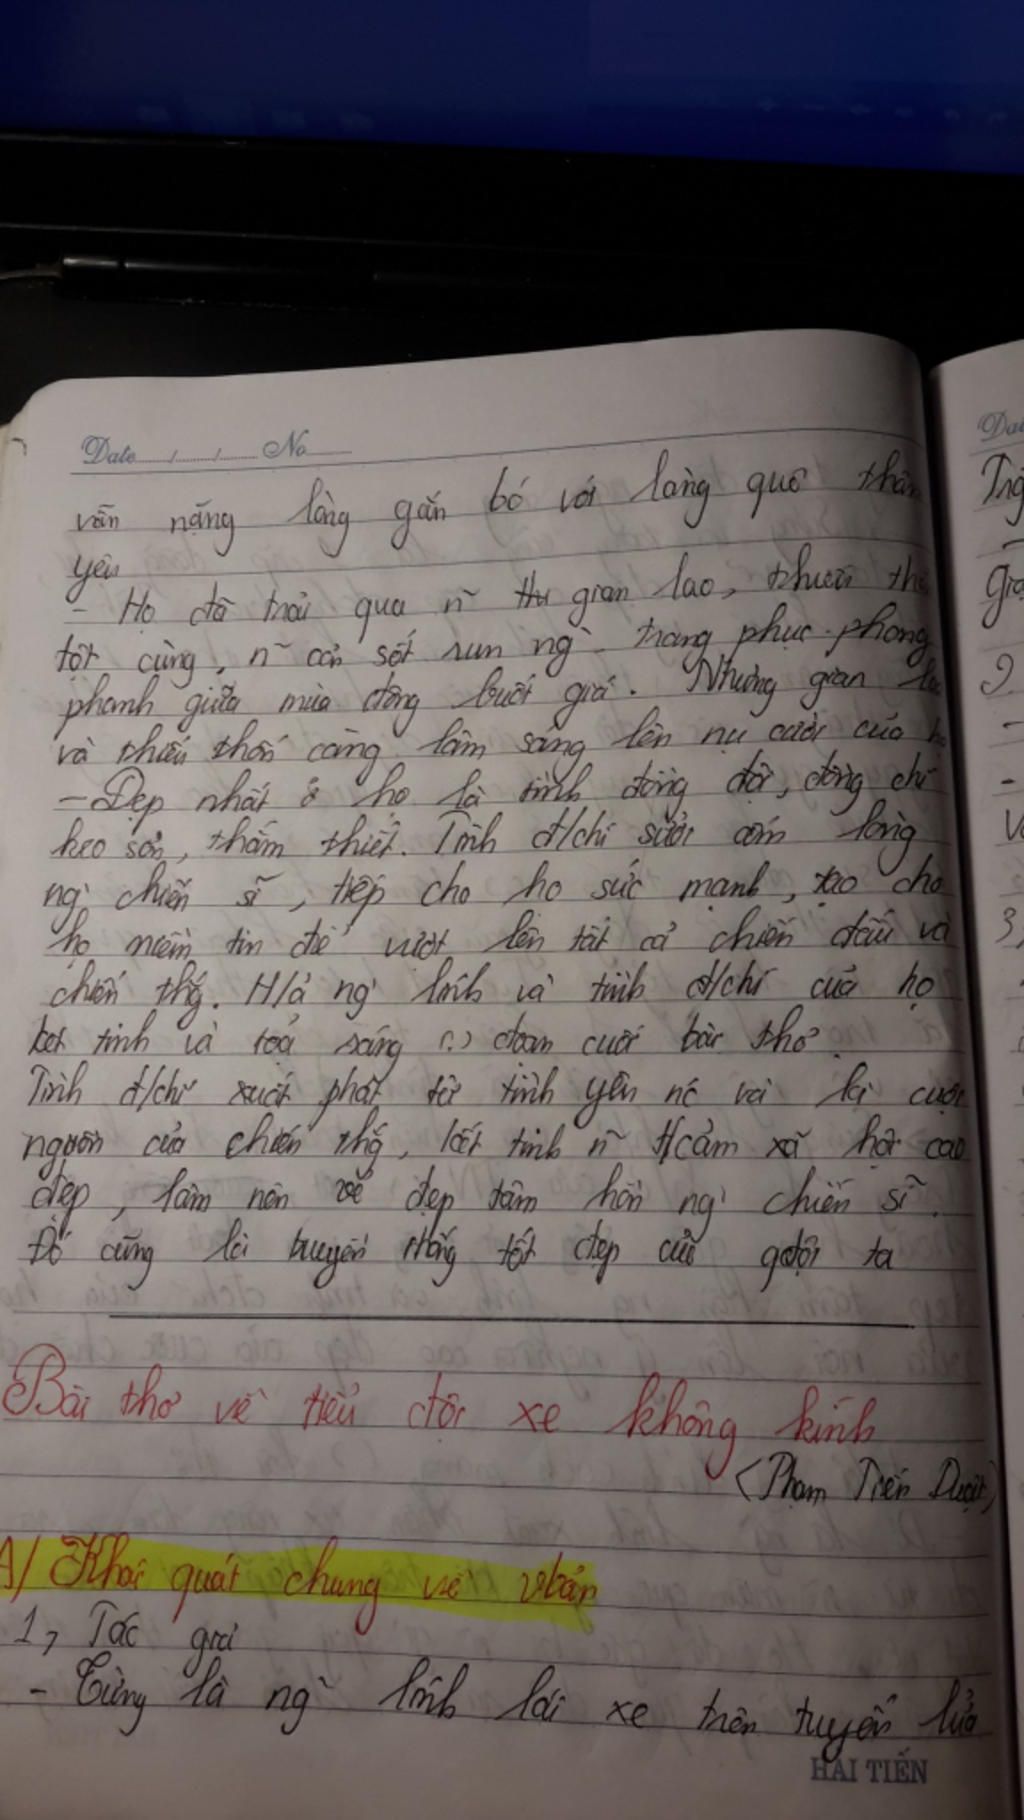 Date / / No
vẫn nặng lòng gắn bó với làng quê thân
yêu
- Họ đã trải qua n~ thg gian lao, thiếu thố
tột cùng, n~ cơn sốt run ng` trang phục phong
phanh giữa mùa đông buốt giá. Nhưng gian lao
và thiếu thốn càng làm sáng lên nụ cười của họ
- Đẹp nhất ở họ là tình đồng đội, đồng chí
keo sơn, thắm thiết. Tình đ/chí sưởi ấm lòng
ng` chiến sĩ, tiếp cho họ sức mạnh, tạo cho
họ niềm tin để vượt lên tất cả chiến đấu và
chiến thg. H/ả ng` lính và tình đ/chí của họ
kết tinh và toả sáng (.) đoạn cuối bài thơ
Tình đ/chí xuất phát từ tình yêu nc và là cuội
nguồn của chiến thg, kết tinh n~ t/cảm xã hội cao
đẹp, làm nên vẻ đẹp tâm hồn ng` chiến sĩ.
Đó cũng là truyền thống tốt đẹp của qđội ta
Bài thơ về tiểu đội xe không kính
(Phạm Tiến Duật)
A/ Khái quát chung về vbản
1, Tác giả
- Từng là ng` lính lái xe trên tuyến lửa
HẢI TIẾN
Dat
2
-
-
3,